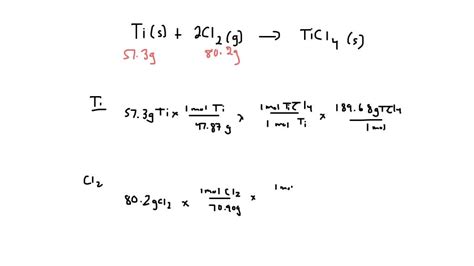 Ti(s) + 2Cl2(g) → TiCl4(s)
57.3g 80.2g
Ti 57.3g Ti x 1 mol Ti / 47.87 g x 1 mol TiCl4 / 1 mol Ti x 189.68g TiCl4 / 1 mol
Cl2 80.2g Cl2 x 1 mol Cl2 / 70.90g x 1 mo